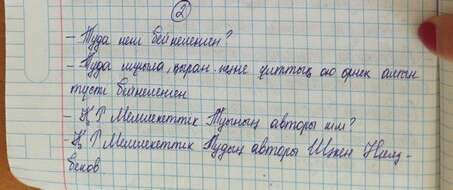 2
- Туда нем бейнеленген?
- Туда шуғыла, қыран және ұлттық ою өрнек алтын
түсті бейнеленген
- Қ Р Мемлекеттік Туының авторы кім?
- Қ Р Мемлекеттік Тудың авторы Шәкен Нияз-
беков